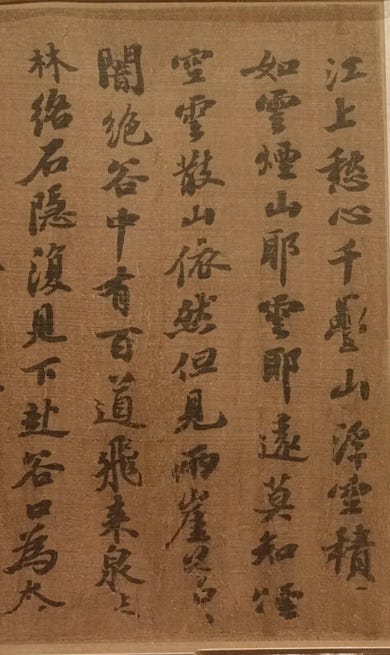 江上愁心千疊山浮空積
如雲煙山耶雲耶遠莫知煙
空雲散山依然但見兩崖蒼
闇絕谷中有百道飛來泉
林絡石隱復見下赴谷口為